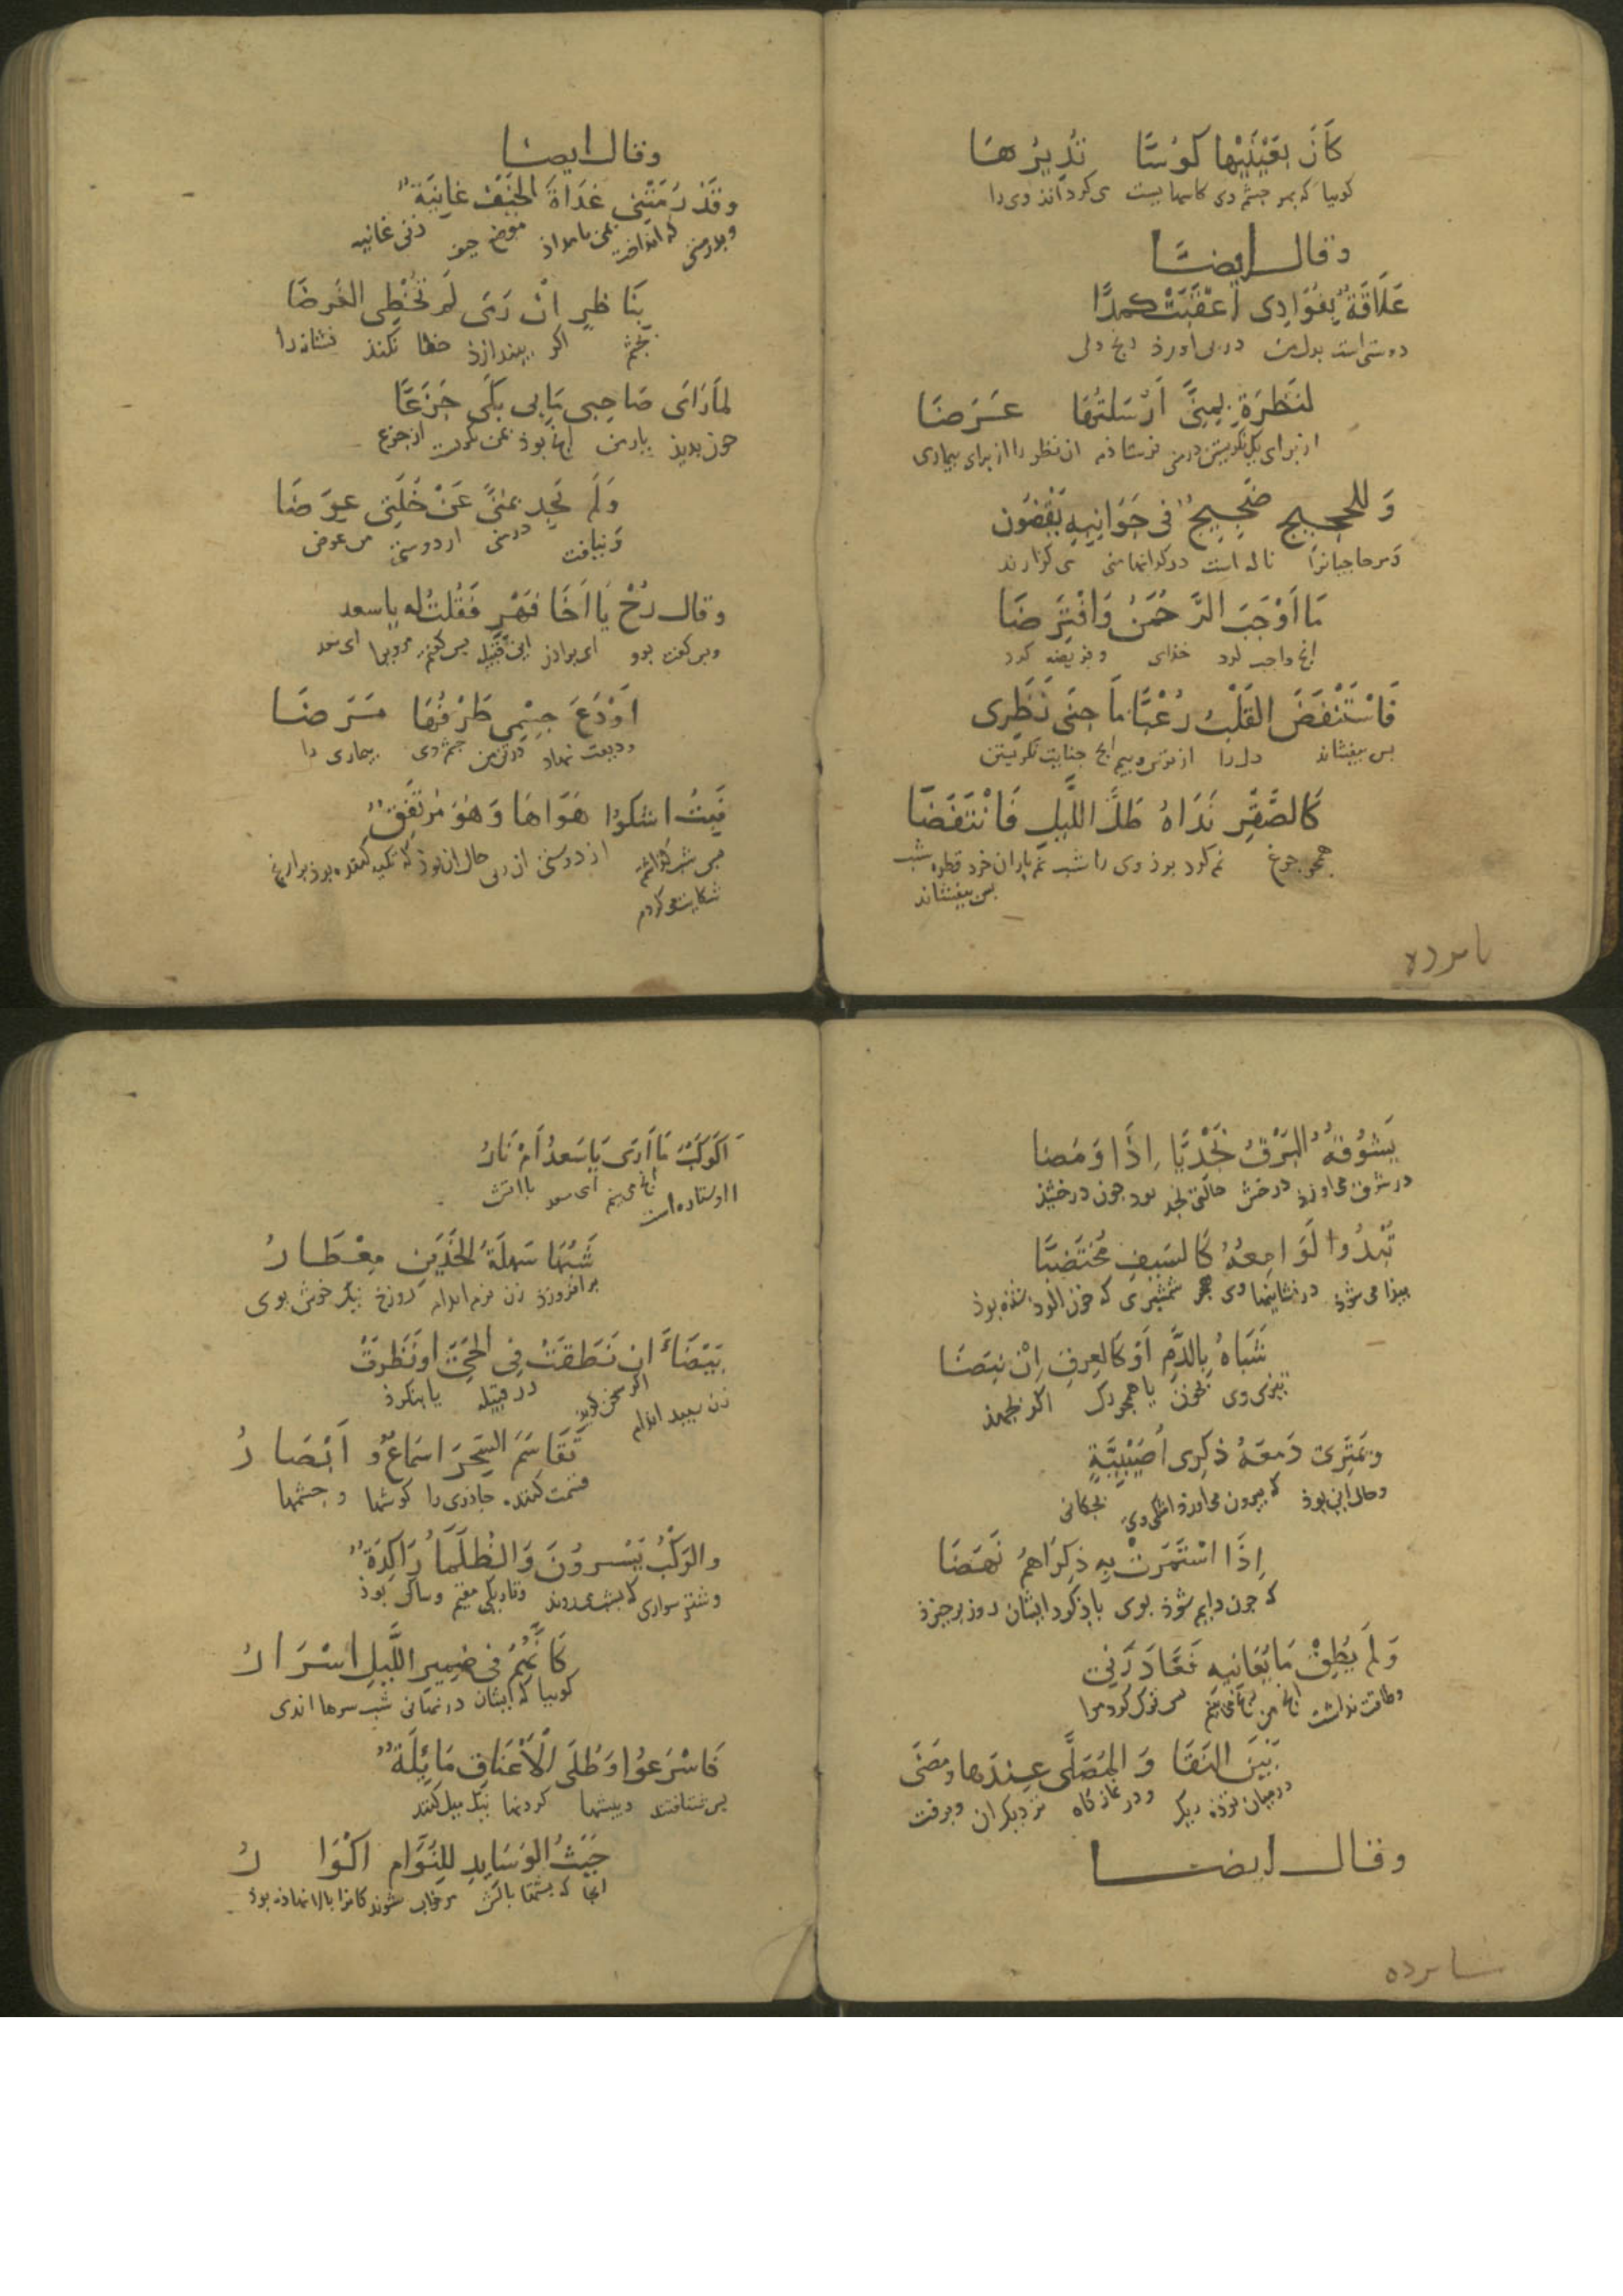 كَأَنَّ بِعَيْنَيْهَا كُؤُسًا تُدِيرُهَا
كوييا كه بهر دو چشم وى كاسها يست مى كرداند وى را
وقال ايضا
عَلَاقَةٌ بِفُؤَادِى اَعْقَبَتْ كَمَدًا
دوستى است بدل من در پى اورد رنج دلى
لِنَظْرَةٍ بِمِنًى اَرْسَلْتُهَا عَرَضَا
از براى يك نكريستن در منى فرستاذم ان نظر را از براى بيمارى
وَلِلْحَجِيجِ ضَجِيجٌ فى جَوَانِبِهِ يَقْضُونَ
ومر حاجيانرا ناله است در كرانهاء منى مى كزارند
مَا اَوْجَبَ الرَّحْمٰنُ وَافْتَرَضَا
انچ واجب كرد خداى وفريضه كرد
فَاسْتَنْفَضَ القَلْبَ رُعْبًا مَا جَنَى نَظَرِى
بس بيفشاند دل را از ترس وبيم انچ جنايت نكريستن
كَالصَّقْرِ نَدَاهُ طَلُّ اللَّيْلِ فَانْتَفَضَا
همجو جرغ نم كرد بوذ وى را شب نم باران خرد قطره شب
بس بيفشاند
يا مرده
وقال ايضا
وقَدْ رَمَتْنِى غَدَاةَ الخَيْفِ غَانِيَةٌ
وبدرستى كه انداخت بمن بامداذ موضع خيف زنى غانيه
بِنَاظِرٍ اِنْ رَمَى لَمْ تُخْطِى الغَرَضَا
بچشم اكر بيندازذ خطا نكند نشانه را
لَمَّا رَاَى صَاحِبِى مَا بِى بَكَى جَزَعًا
چون بديذ يار من انچ بوذ بمن بكريست از جزع
وَلَمْ يَجِد بِمِنًى عَنْ خُلَّتِى عِوَضَا
ونيافت در منى از دوستى من عوض
وقال رُحْ يَا اَخَا فِهْرٍ فَقُلْتُ له يا سعد
وبس كفت برو اى براذر اين قبيله بس كفتم مرويرا اى سعد
اَوْدَعَ جِسْمِى طَرْفُهَا مَرَضَا
وديعت نهاد در تن من چشم وى بيمارى را
فَبِتُّ اشكوا هَوَاهَا وَهْوَ مُرْتَفِقٌ
بس شب كزاشتم از دوستى ان زن حال ان بوذ كه تكيه كرده بوذ بر ارنج
شكايت مى كردم
يَشُوقُهُ البَرْقُ نَجْدِيًّا اِذَا وَمَضَا
در شوق مى اورذ درخش حالتى نجد بود چون درخشيذ
تَبْدُوا لَوَامِعُهُ كَالسَيفِ مُخْتَضِبًا
پيذا مى شوذ درخشانيها وى همجو شمشيرى كه خون الود شذه بوذ
شَبَاهُ بِالدَّمِ اَوْ كَالعِرْقِ اِنْ نَبَضَا
تيزى وى بخون يا همجو رك اكر بجهد
وتَمْتَرِى دَمعَهُ ذِكرى اُصَيْبِيَةٍ
وحال اين بوذ كه بيرون مى اورذ اشك وى بچكانى
اِذَا اسْتَمَرَتْ بِهِ ذِكرَاهُمْ نَهَضَا
كه چون دايم شوذ بوى ياذ كرد ايشان روز برخيزذ
وَلَمْ يُطِقْ مَا يُعَانِيهِ فَغَادَرَنِى
وطاقت نداشت انچ من رنج مى كشم بس ترك كرد مرا
بَيْنَ النَقَا وَ المُصَلَّى عِندَهَا ومَضَى
در ميان توذه ريك ودر نماز كاه نزديك ان وبرفت
وقال ايضا
اَكَوْكَبٌ مَا اَرَى يَا سَعدُ اَمْ نَارُ
ااو ستاره است انچ مى بينم اى سعد يا اتش
تَشُبُّهَا سَهلَةُ الخَدَّيْنِ مِعْطَارُ
برافروزذ زن نرم اندام دو رخ نيك خوش بوى
بَيْضَاءُ ان نَطَقَتْ فِى الحَىِّ او نَظَرَتْ
زن سپيد اندام اكر سخن كويد در قبيله يا بنكرذ
تَقَاسَمَ السِّحْرَ اسمَاعٌ وَ اَبْصَارُ
قسمت كنند جاذوى را كوشها وچشمها
والرَكْبُ يَسْرُونَ وَالظَلْمَاءُ رَاكِدَةٌ
وشتر سوارى كه بشب مى روند وتاريكى مقيم وساكن بوذ
كَاَنَّهُمْ فى ضَمِيرِ اللَّيلِ اَسْرَارُ
كوييا كه ايشان در نهانى شب سرها اندى
فَاسْرَعُوا وَطُلَى الْاَعْنَاقِ مَائِلَةٌ
بس شتافتند وپيشها كردنها نيك ميل كنند
حَيْثُ الوَسَايِدُ لِلنُوَّامِ اَكْوَارُ
انجا كه پشتها بالش مر خواب شوندكانرا بالانها ذه بوذ